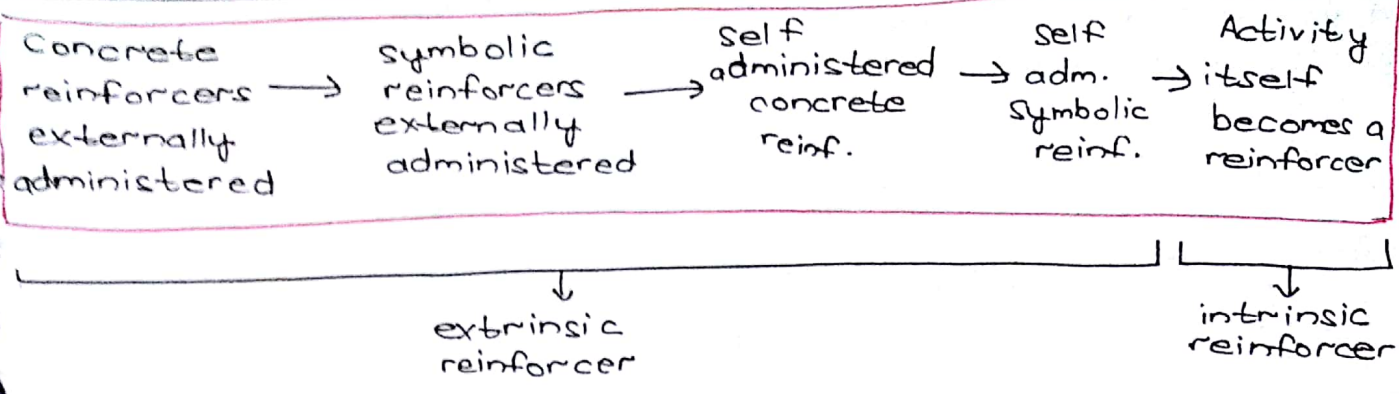 Concrete
reinforcers
externally
administered
→
symbolic
reinforcers
externally
administered
→
self
administered
concrete
reinf.
→
self
adm.
symbolic
reinf.
→
Activity
itself
becomes a
reinforcer
extrinsic
reinforcer
intrinsic
reinforcer